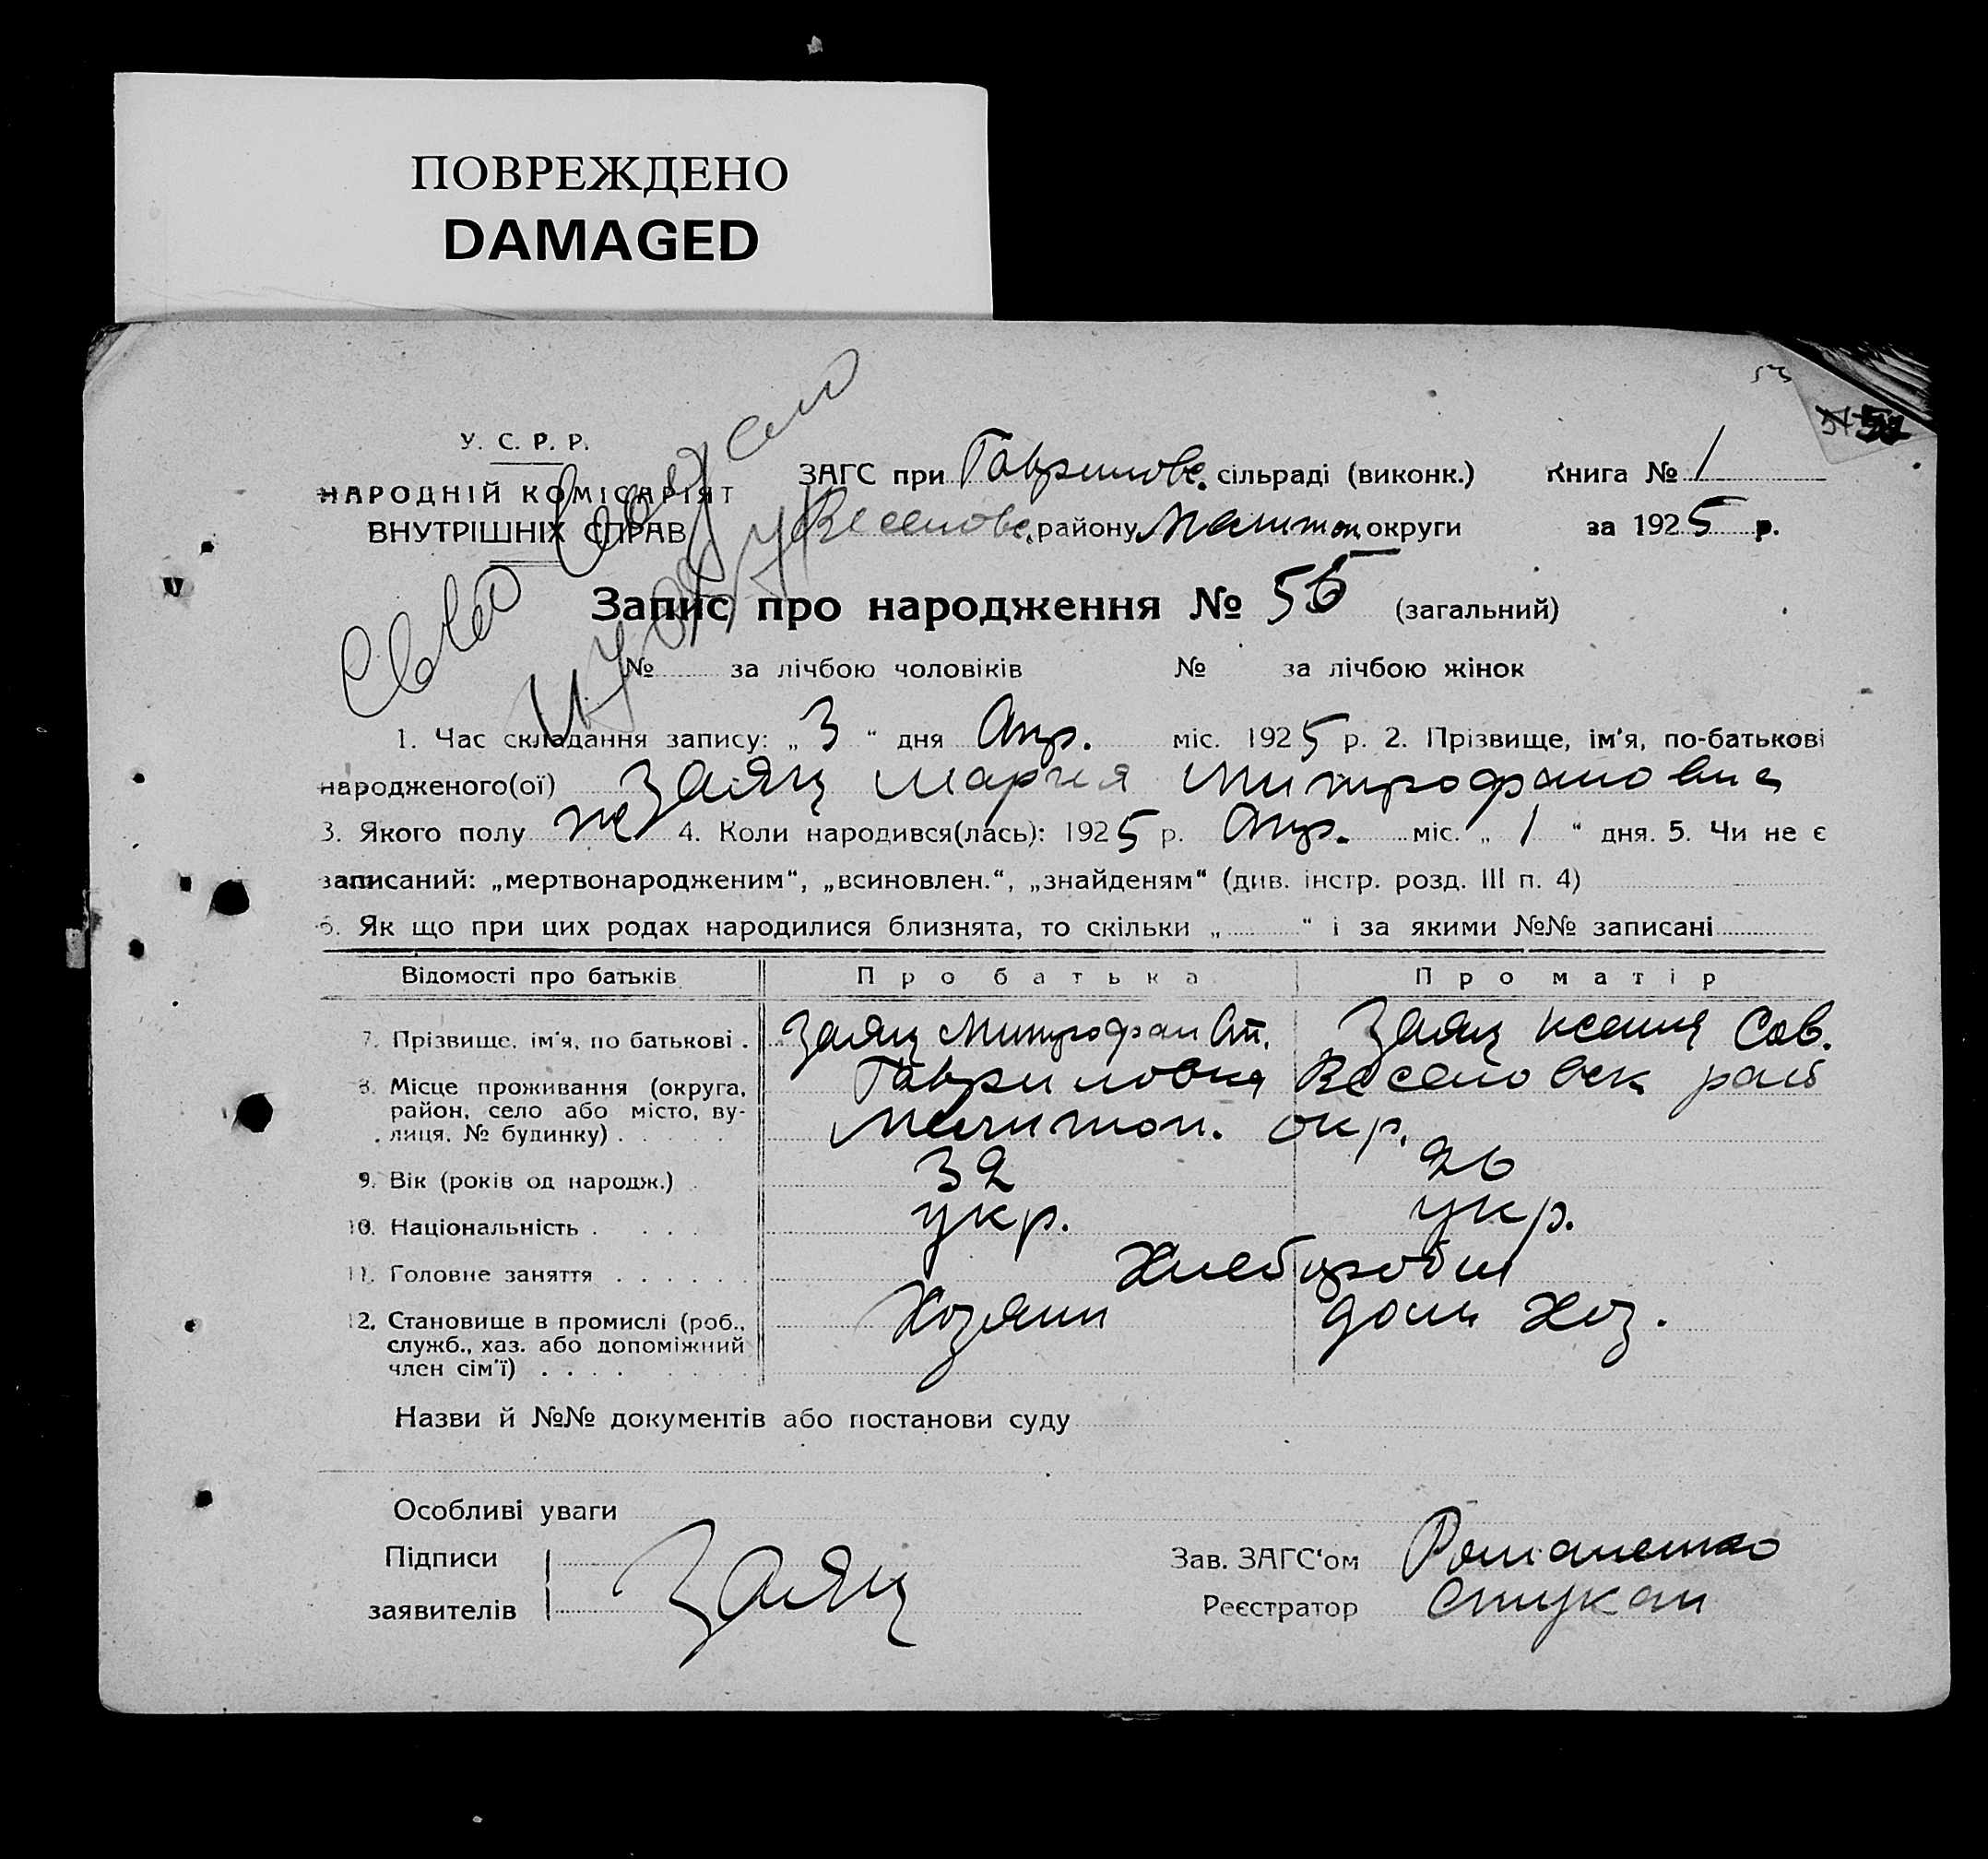 ПОВРЕЖДЕНО
DAMAGED
53
У. С. Р. Р.
НАРОДНІЙ КОМІСАРІЯТ
ВНУТРІШНІХ СПРАВ
ЗАГС при Гавриловс. сільраді (виконк.) Книга № 1
Веселовс. району Мелитоп округи за 1925 р.
Запис про народження № 55 (загальний)
№ за лічбою чоловіків № за лічбою жінок
1. Час складання запису: „3“ дня Апр. міс. 1925 р. 2. Прізвище, ім'я, по-батькові
народженого(ої) Заяц Мария Митрофановна
3. Якого полу же 4. Коли народився(лась): 1925 р. Апр. міс. „1“ дня. 5. Чи не є
записаний: „мертвонародженим“, „всиновлен.“, „знайденям“ (див. інстр. розд. III п. 4)
6. Як що при цих родах народилися близнята, то скільки „ “ і за якими №№ записані
Відомості про батьків Про батька Про матір
7. Прізвище, ім'я, по батькові . Заяц Митрофан Ст. Заяц Ксения Сав.
8. Місце проживання (округа, Гавриловка Веселовск рай
район, село або місто, ву-
лиця, № будинку) . Мелитоп. окр.
9. Вік (років од народж.) . 32 26
10. Національність . укр. укр.
11. Головне заняття . Хлебороби
12. Становище в промислі (роб., Хозяин дом хоз.
служб., хаз. або допоміжний
член сім'ї) .
Назви й №№ документів або постанови суду
Особливі уваги
Підписи
заявителів Заяц
Зав. ЗАГС'ом Романенко
Реєстратор Стукан